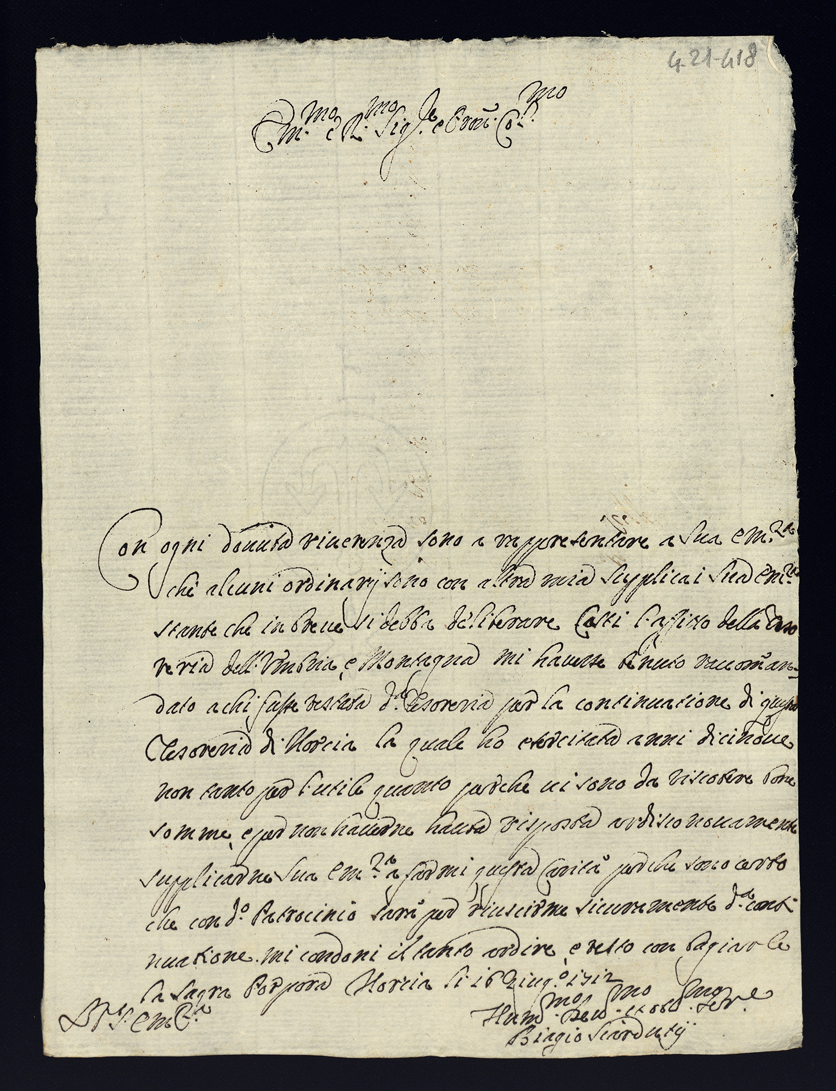 4-21-418
Em.mo e R.mo Sig.re e Pron. Col.mo
Con ogni douuta riuerenza sono a rappresentare a sua Em.za
che alcuni ordinarij sono con altra mia supplicai sua Em.za
stante che in breue si debba deliberare Costi l'affitto della Teso
reria dell'Vmbria, e Montagna mi hauesse tenuto raccoman=
dato a chi fusse restata d.a Tesoreria per la continuatione di questa
Tesoreria di Norcia la quale ho esercitata anni dicinque
non tanto per l'utile quanto perche ui sono da riscotere bone
somme, e per non hauerne hauuta risposta ardisco nouamente
supplicarne sua Em.za a farmi questa Carità perche sono certo
che con d.o Patrocinio sarà per riuscirme sicuramente d.a conti
nuatione. mi condoni il tanto ardire, e resto con bagiarle
la sagra Porpora Norcia li 16 giug.o 1712
D. V. S. Em.za
Hum.mo Deu.mo et obb.mo Ser.e
Biagio Scardutij